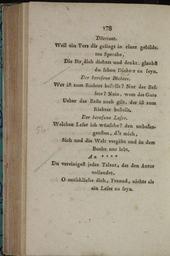 178
Dilettant.
Weil ein Vers dir gelingt in einer gebilde-
ten Sprache,
Die für dich dichtet und denkt, glaubst
du schon Dichter zu seyn.
Der berufene Richter.
Wer ist zum Richter bestellt? Nur der Bes-
sere? Nein, wem das Gute
Ueber das Beste noch gilt, der ist zum
Richter bestellt.
Der berufene Leser.
Welchen Leser ich wünsche? den unbefan-
gensten, der mich,
Sich und die Welt vergisst und in dem
Buche nur lebt.
An ****
Du vereinigest jedes Talent, das den Autor
vollendet,
O entschliesse dich, Freund, nichts als
ein Leser zu seyn.